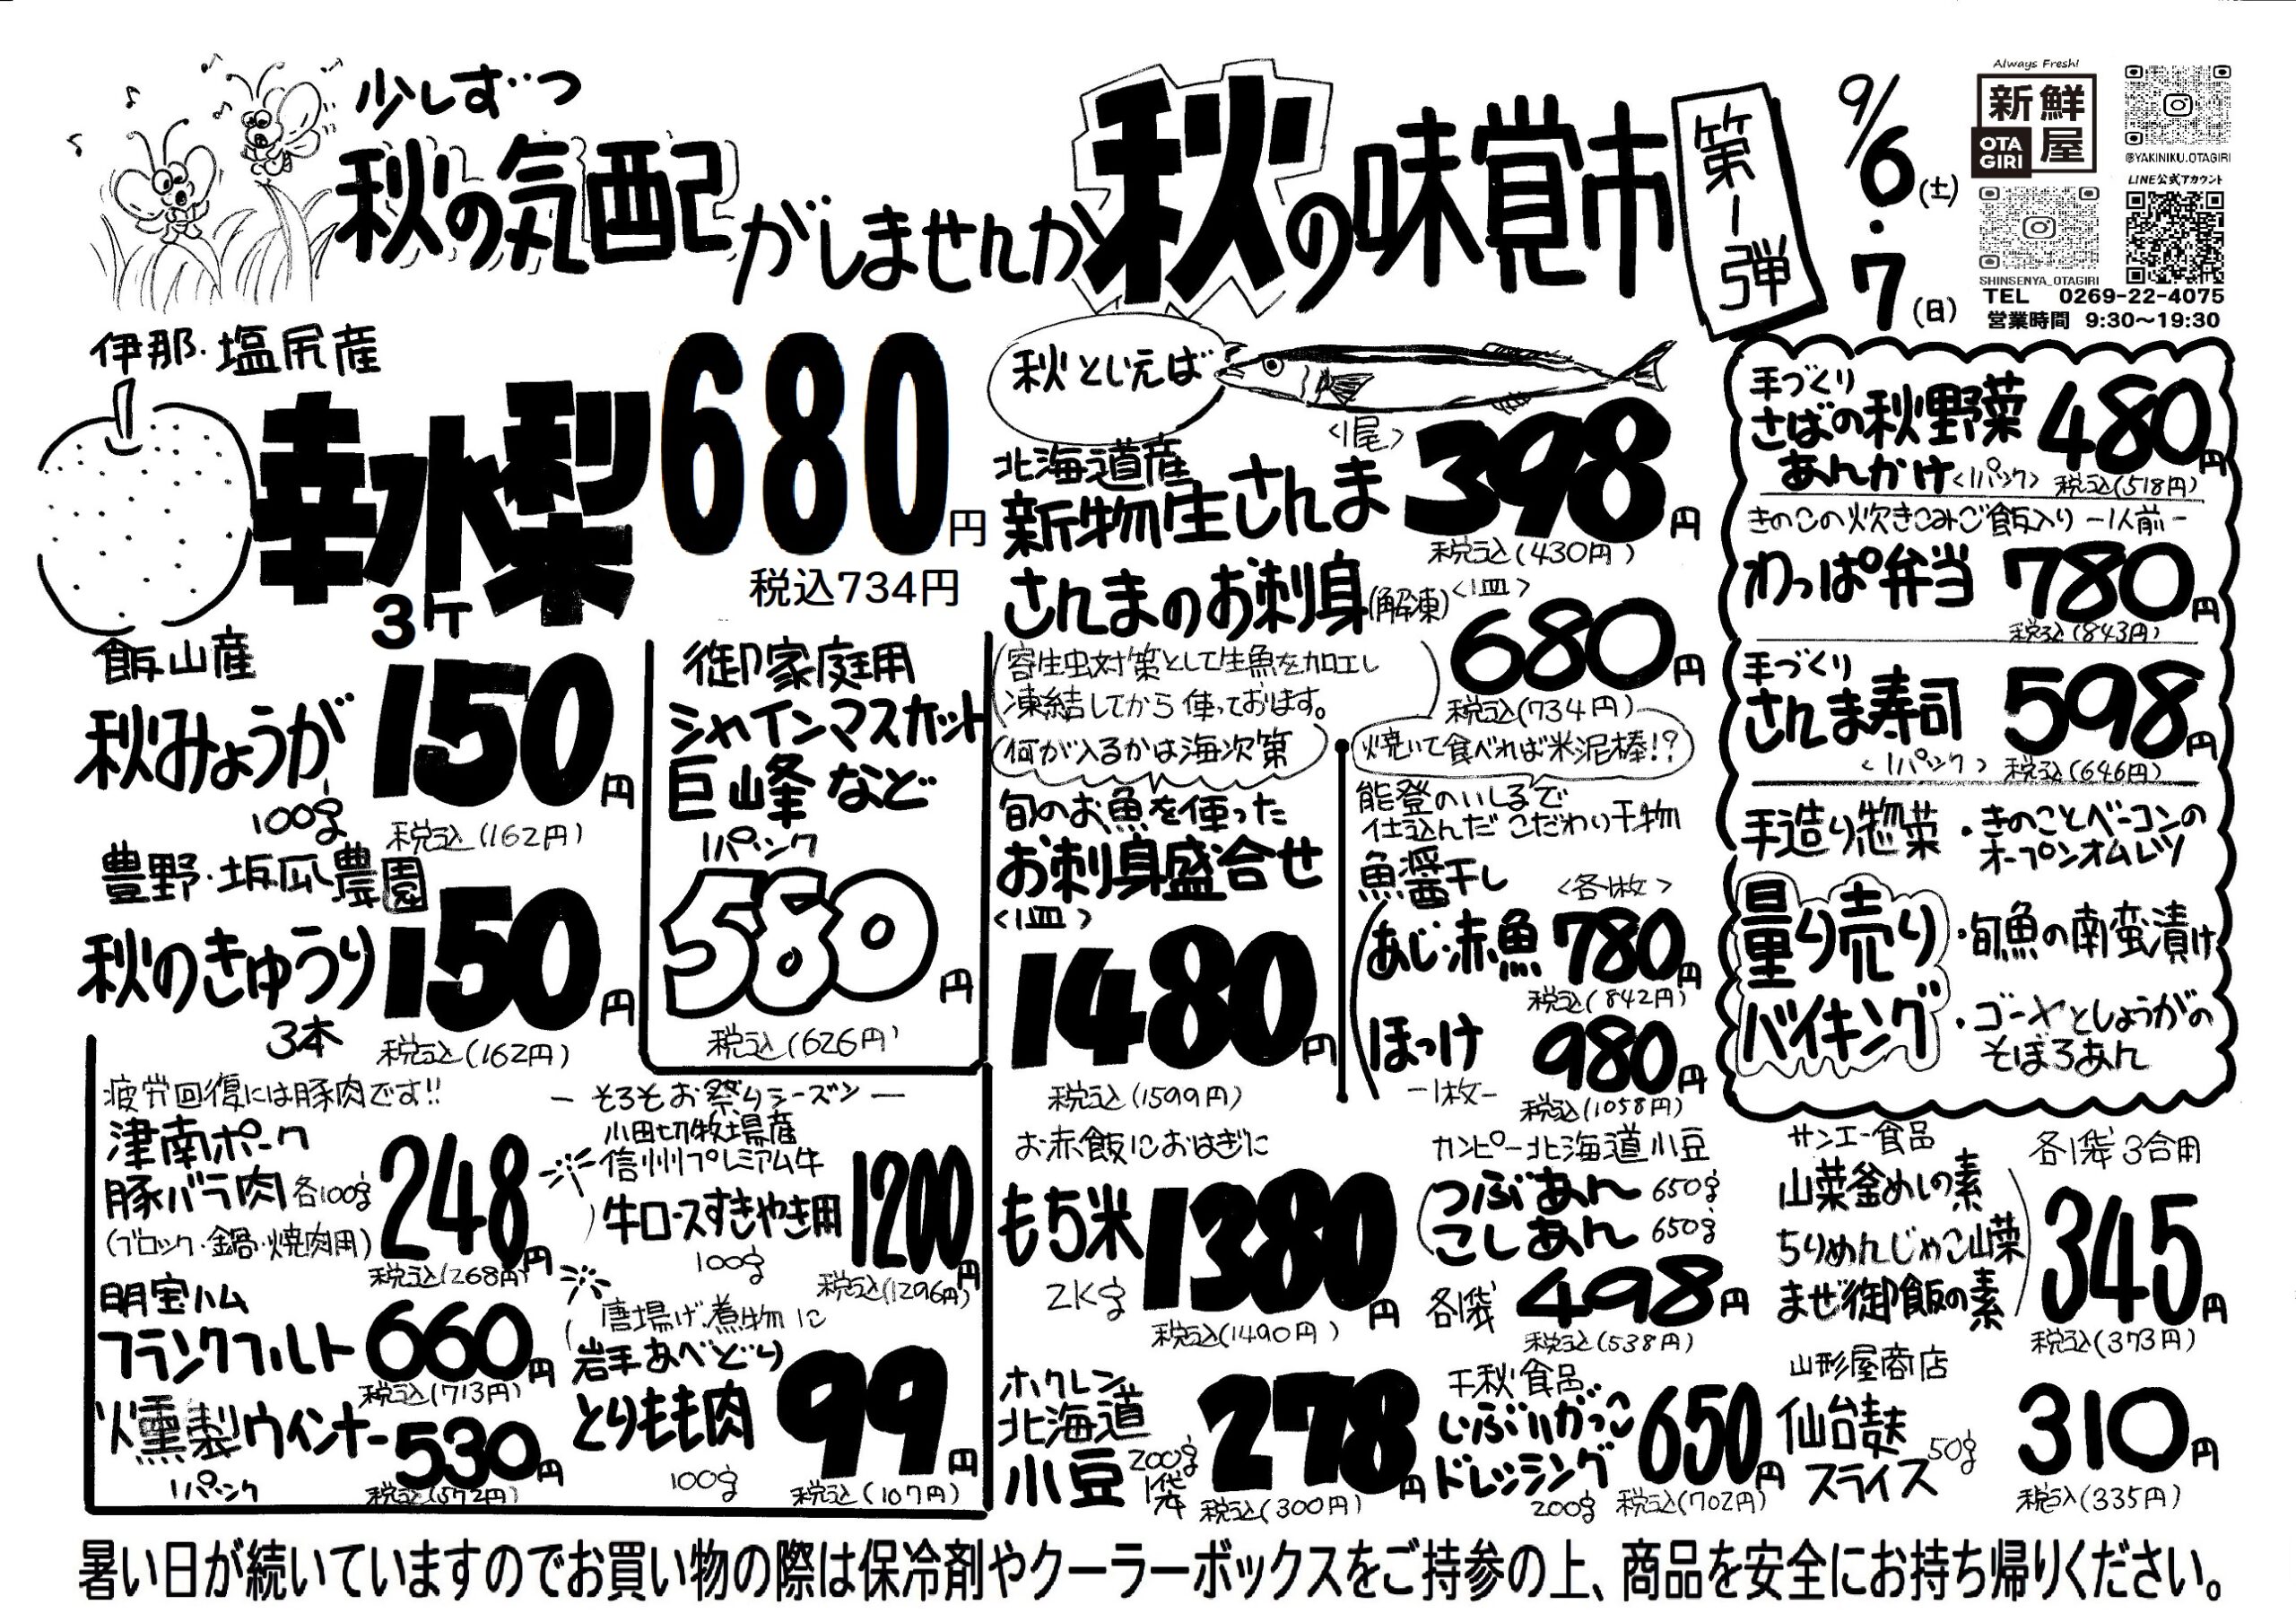 少しずつ
秋の気配がしませんか
秋の味覚市
第一弾
9/6(土)・7(日)
Always Fresh!
新鮮屋
OTAGIRI
@YAKINIKU.OTAGIRI
LINE公式アカウント
SHINSENYA_OTAGIRI
TEL 0269-22-4075
営業時間 9:30〜19:30
伊那・塩尻産
幸水梨
3ケ
680円
税込734円
飯山産
秋みょうが
100g
150円
税込(162円)
豊野・坂爪農園
秋のきゅうり
3本
150円
税込(162円)
御家庭用
シャインマスカット
巨峰など
1パック
580円
税込(626円)
秋といえば
北海道産
新物生さんま
<1尾>
398円
税込(430円)
さんまのお刺身(解凍)
<1皿>
680円
税込(734円)
(寄生虫対策として生魚を加工し
凍結してから使っております。)
何が入るかは海次第
旬のお魚を使った
お刺身盛合せ
<1皿>
1480円
税込(1599円)
焼いて食べれば米泥棒!?
能登のいしるで
仕込んだこだわり干物
魚醤干し
<各1枚>
あじ・赤魚 780円
税込(842円)
ほっけ
-1枚-
980円
税込(1058円)
手づくり
さばの秋野菜
あんかけ<1パック>
480円
税込(518円)
きのこの炊きこみご飯入り -1人前-
わっぱ弁当 780円
税込(843円)
手づくり
さんま寿司 598円
<1パック> 税込(646円)
手造り惣菜
量り売り
バイキング
・きのことベーコンの
オープンオムレツ
・旬魚の南蛮漬け
・ゴーヤとしょうがの
そぼろあん
疲労回復には豚肉です!!
津南ポーク
豚バラ肉各100g
(ブロック・鍋・焼肉用)
248円
税込(268円)
明宝ハム
フランクフルト 660円
税込(713円)
燻製ウインナー 530円
1パック
税込(572円)
ー そろそろお祭りシーズン ー
小田切牧場産
信州プレミアム牛
牛ロースすきやき用
100g
1200円
税込(1296円)
唐揚げ、煮物に
岩手あべどり
とりもも肉
100g
99円
税込(107円)
お赤飯におはぎに
もち米
2Kg
1380円
税込(1490円)
カンピー北海道小豆
つぶあん 650g
こしあん 650g
各1袋 498円
税込(538円)
サンエー食品
山菜釜めしの素
ちりめんじゃこ山菜
まぜ御飯の素
各1袋 3合用
345円
税込(373円)
ホクレン
北海道
小豆
200g
1袋
278円
税込(300円)
千秋食品
いぶりがっこ
ドレッシング
200g
650円
税込(702円)
山形屋商店
仙台麩
スライス
50g
310円
税込(335円)
暑い日が続いていますのでお買い物の際は保冷剤やクーラーボックスをご持参の上、商品を安全にお持ち帰りください。